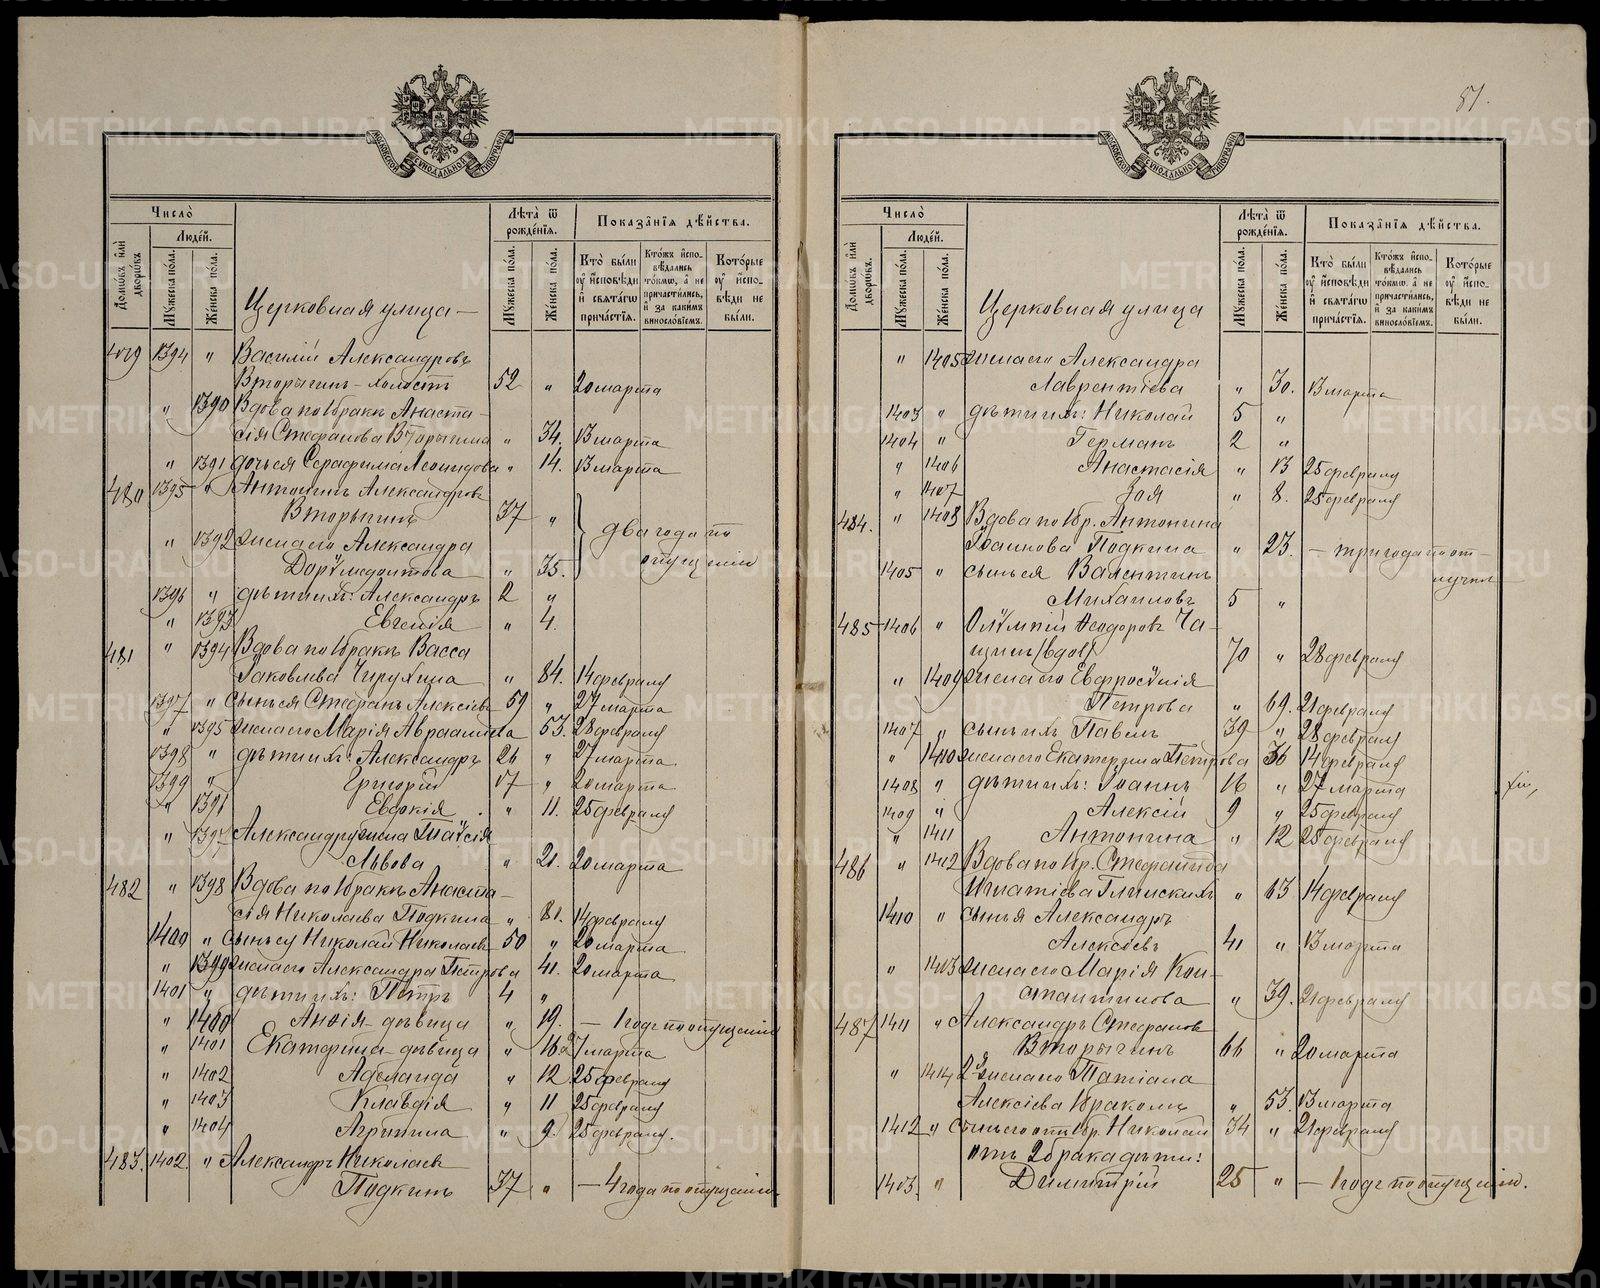 Число̀
Людéй.
Домѡ́въ и҆лѝ дворѡ́въ.
Мꙋ́жеска пóла.
Жéнска пóла.
Церковная улица —
Лѣ́та ѿ рождéнїѧ.
Мꙋ́жеска пóла.
Жéнска пóла.
Показа̑нїѧ дѣ́йства.
Кто̀ бы́ли оу҆ и҆́сповѣди и҆ свѧта́гѡ прича́стїѧ.
Кто́жъ и҆сповѣ́дались то́кмѡ, а҆ не причасти́лись, и҆ за каки́мъ винослóвїемъ.
Кото́рые оу҆ и҆́сповѣди не бы́ли.
479 1394 " Василій Александровъ
Вторыгинъ – холостъ 52 " 20 марта
" 1390 Вдова по 1 бракѣ Анаста-
сія Стефанова Вторыгина " 34. 13 марта
" 1391 дочь ея Серафима Леонидова " 14. 13 марта
480 1395 " Антонинъ Александровъ
Вторыгинъ 37 "
два года по
" 1392 жена его Александра
опущенію
Дорѵмедонтова " 35.
1396 " дѣти ихъ: Александръ 2 "
" 1393 Евгенія " 4.
481 " 1394 Вдова по 1 бракѣ Васса
Іаковлева Чирухина " 84. 14 февраля
1397 " сынъ ея Стефанъ Алексіевъ 59 " 27 марта
" 1395 жена его Марія Аврааміева 53. 28 февраля
1398 " дѣти ихъ: Александръ 26 " 27 марта
1399 " Григорій 17 " 20 марта
" 1391 Евдокія " 11. 25 февраля
" 1397 Александру жена Таисія
Львова " 21. 20 марта
482 " 1398 Вдова по 1 бракѣ Анаста-
сія Николаева Подкина " 81. 14 февраля
1400 " сынъ ея Николай Николаевъ 50 " 20 марта
" 1399 жена его Александра Петрова 41. 20 марта
1401 " дѣти ихъ: Петръ 4 "
" 1400 Анѳія – дѣвица " 19. — 1 годъ по опущенію
" 1401 Екатерина – дѣвица " 16 27 марта
" 1402 Аделаида " 12 25 февраля
" 1403 Клавдія " 11 25 февраля
" 1404 Агрипина " 9. 25 февраля.
483. 1402. " Александръ Николаевъ
Подкинъ 37 " — 4 года по опущенію
81.
Число̀
Людéй.
Домѡ́въ и҆лѝ дворѡ́въ.
Мꙋ́жеска пóла.
Жéнска пóла.
Церковная улица
Лѣ́та ѿ рождéнїѧ.
Мꙋ́жеска пóла.
Жéнска пóла.
Показа̑нїѧ дѣ́йства.
Кто̀ бы́ли оу҆ и҆́сповѣди и҆ свѧта́гѡ прича́стїѧ.
Кто́жъ и҆сповѣ́дались то́кмѡ, а҆ не причасти́лись, и҆ за каки́мъ винослóвїемъ.
Кото́рые оу҆ и҆́сповѣди не бы́ли.
" 1405 жена его Александра
Лаврентіева " 30. 13 марта
1403 " дѣти ихъ: Николай 5 "
1404 " Германъ 2 "
" 1406 Анастасія " 13 25 февраля
" 1407 Зоя " 8. 25 февраля
484. " 1408 Вдова по 1 бр. Антонина
Іоаннова Подкина " 23. — три года по от-
лучкѣ
1405 " сынъ ея Валентинъ
Михаиловъ 5 "
485 1406 " Олѵмпій Ѳеодоровъ Ча-
щинъ (вдов) 70 " 28 февраля
" 1409 жена его Евфросѵнія
Петрова " 69. 21 февраля
1407 " сынъ ихъ Павелъ 39 " 28 февраля
" 1410 жена его Екатерина Петрова 36 14 февраля
1408 " дѣти ихъ: Іоаннъ 16 " 27 марта
1409 " Алексій 9 " 25 февраля
" 1411 Антонина " 12 25 февраля
486 " 1412 Вдова по 1 бр. Стефанида
Игнатіева Глинскихъ " 63 14 февраля
1410 " сынъ ея Александръ
Алексіевъ 41 " 13 марта
" 1413 жена его Марія Кон-
стантинова " 39. 21 февраля
487 1411 " Александръ Стефановъ
Вторыгинъ 66 " 20 марта
" 1414 2я жена его Татіана
Алексіева 1 бракомъ " 53. 13 марта
1412 " сынъ его отъ 1 бр. Николай 34 " 21 февраля
отъ 2 брака дѣти:
1413. " Димитрій 25 " — 1 годъ по опущенію.
МОСКОВСКОЙ СѴНОДАЛЬНОЙ ТИПОГРАФІИ
METRIKI.GASO-URAL.RU